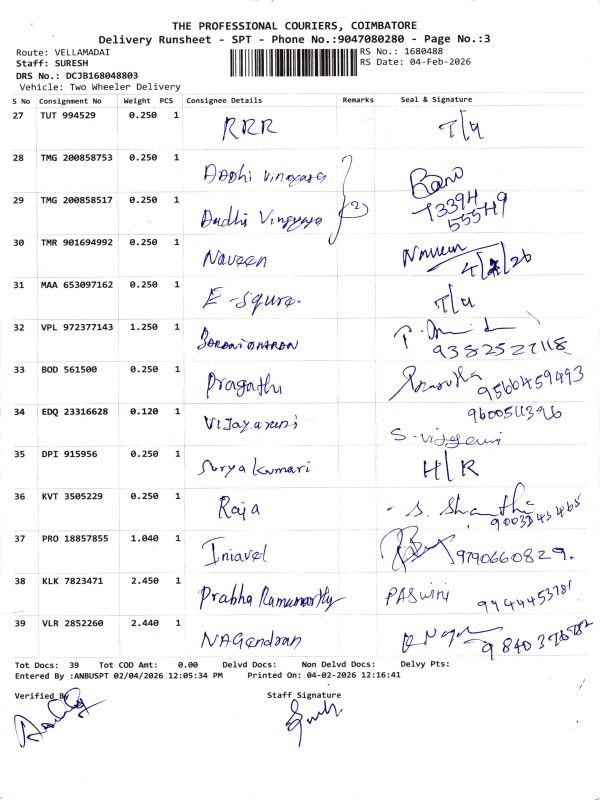 THE PROFESSIONAL COURIERS, COIMBATORE
Delivery Runsheet - SPT - Phone No.:9047080280 - Page No.:3
Route: VELLAMADAI
RS No.: 1680488
Staff: SURESH
RS Date: 04-Feb-2026
DRS No.: DCJB168048803
Vehicle: Two Wheeler Delivery
S No Consignment No Weight PCS Consignee Details Remarks Seal & Signature
27 TUT 994529 0.250 1 RRR T/4
28 TMG 200858753 0.250 1 Aadhi Vinayaga
29 TMG 200858517 0.250 1 Aadhi (2) 73394 55549
30 TMR 901694992 0.250 1 Naveen Naveen
31 MAA 653097162 0.250 1 E-Squre. T/4
32 VPL 972377143 1.250 1 9382527118
33 BOD 561500 0.250 1 Pragathi 9560459493
34 EDQ 23316628 0.120 1 Vijayarani 9600511396
35 DPI 915956 0.250 1 Surya Kumari H/R
36 KVT 3505229 0.250 1 Raja S. Shanthi
37 PRO 18857855 1.040 1 Iniavel 9790660829.
38 KLK 7823471 2.450 1 Prabha Ramumorthy PASwini 9944453781
39 VLR 2852260 2.440 1 NAGendran
Tot Docs: 39 Tot COD Amt: 0.00 Delvd Docs: Non Delvd Docs: Delvy Pts:
Entered By :ANBUSPT 02/04/2026 12:05:34 PM Printed On: 04-02-2026 12:16:41
Verified By Staff Signature